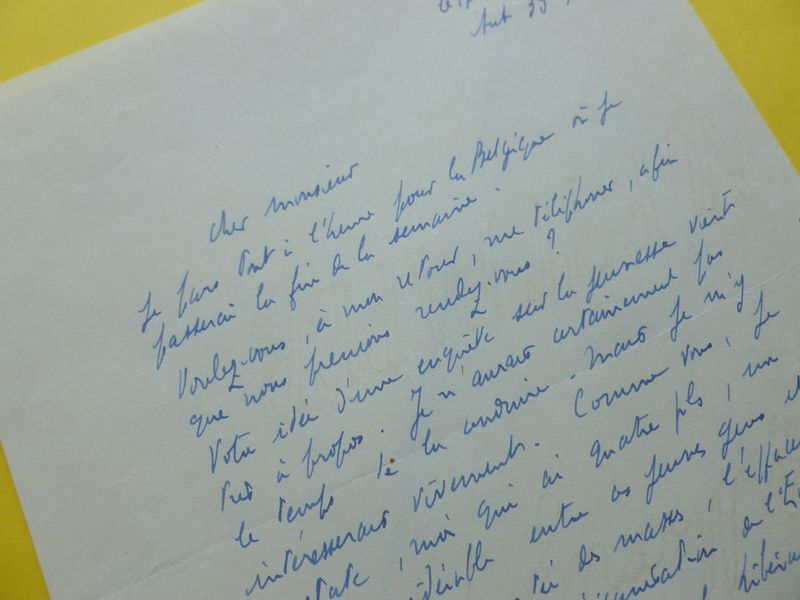 Cher Monsieur
Je pars tout à l'heure pour la Belgique où je
passerai la fin de la semaine.
Voulez-vous, à mon retour, me téléphoner, afin
que nous prenions rendez-vous ?
Votre idée d'une enquête sur la jeunesse vient
très à propos. Je n'aurais certainement pas
le temps de la conduire. Mais je m'y
intéresserais vivement. Comme vous, je
moi qui ai quatre fils, un
entre ces jeunes gens et
des masses, l'efface
de l'E